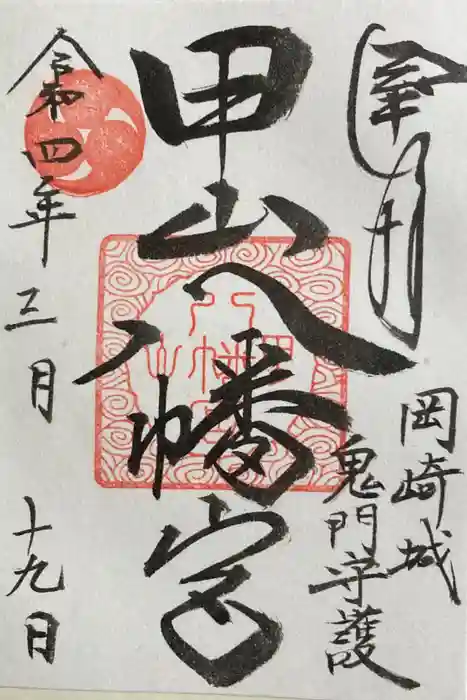 奉拝
岡崎城
鬼門守護
甲山八幡宮
令和四年三月十九日